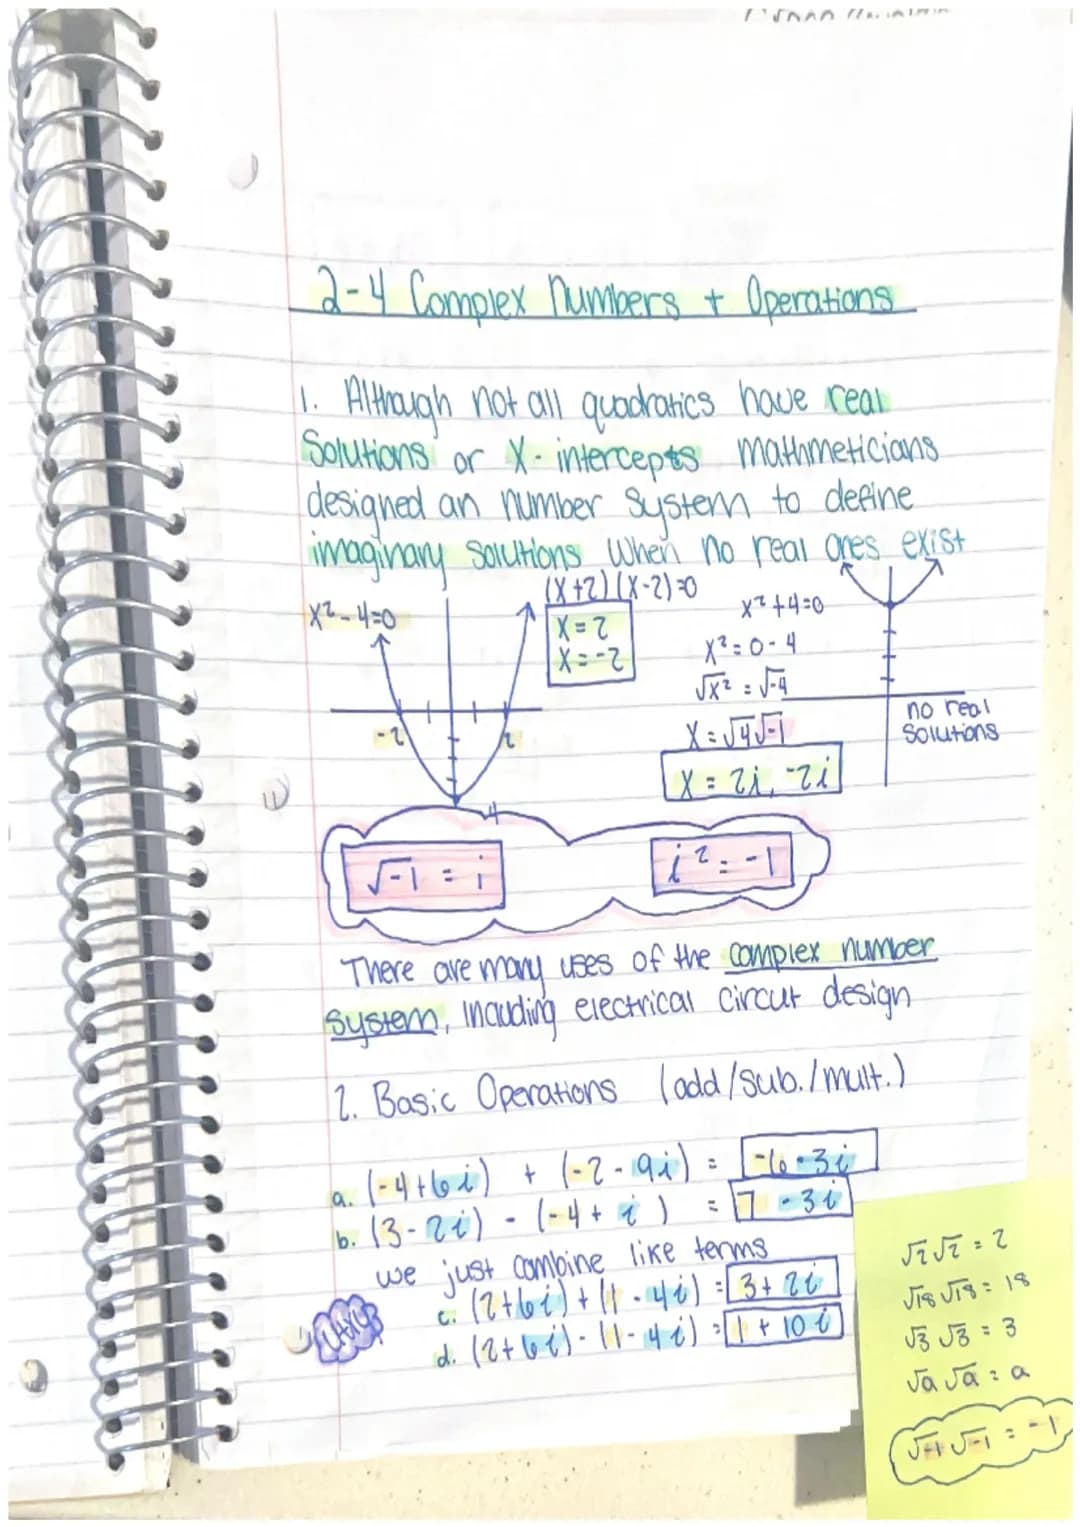 2-4 Complex Numbers + Operations
1. Although not all quadratics have real
Solutions or X-intercepts mathmeticians
designed an number system to define
imaginary solutions when no real ones exist
x²-4=0
(x+2)(x-2)=0
x=2
x=-2
-2
2
-4
x²+4=0
x²=0-4
√x² = √-4
x=√4√-1
x = 2i, -2i
no real
solutions
√-1 = i
i² = -1
There are many uses of the complex number
system, including electrical circut design
2. Basic Operations (add/sub./mult.)
a. (-4+6i) + (-2-9i) = -6-3i
b. (3-2i) - (-4+i) = 7-3i
we just combine like terms
c. (2+6i)+(1-4i) = 3+2i
d. (2+6i)-(1-4i) = 1+10i
√2√2 = 2
√18√18 = 18
√3√3 = 3
√a√a = a
√-1√-1 = -1